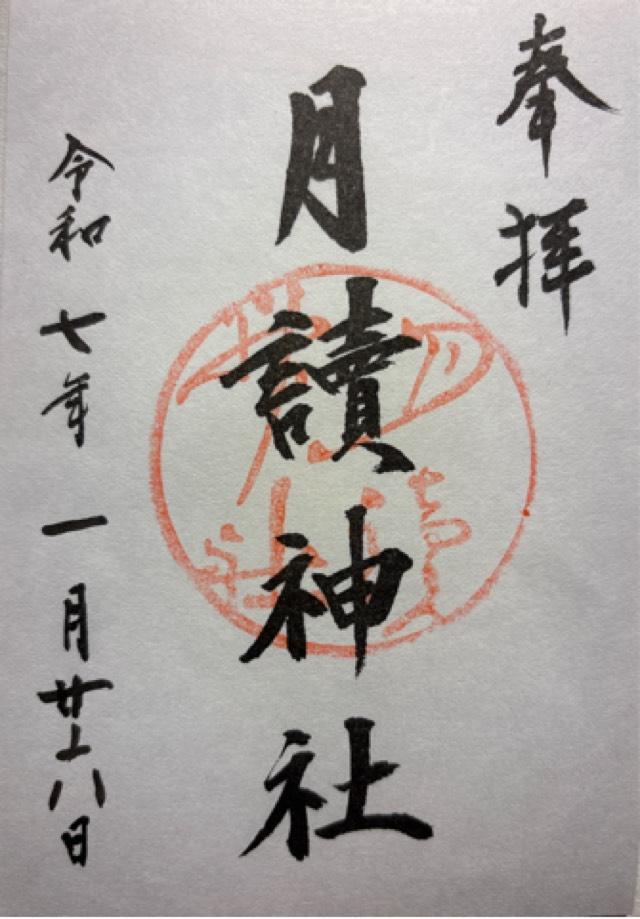 奉拝
月讀神社
令和七年一月廿八日